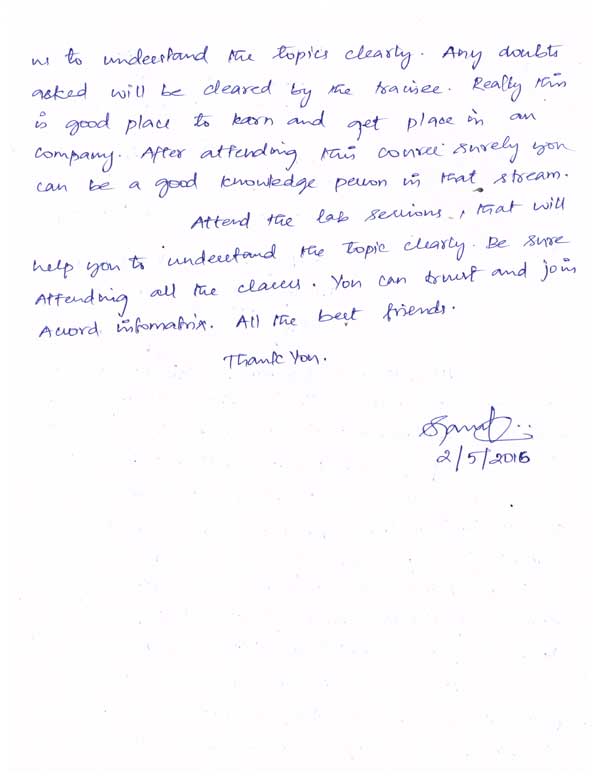 us to understand the topics clearly. Any doubts
asked will be cleared by the trainee. Really this
is good place to learn and get place in an
company. After attending this course surely you
can be a good knowledge person in that stream.
Attend the lab sessions, that will
help you to understand the topic clearly. Be sure
Attending all the classes. You can trust and join
Accord infomatrix. All the best friends.
Thank You.
2/5/2016